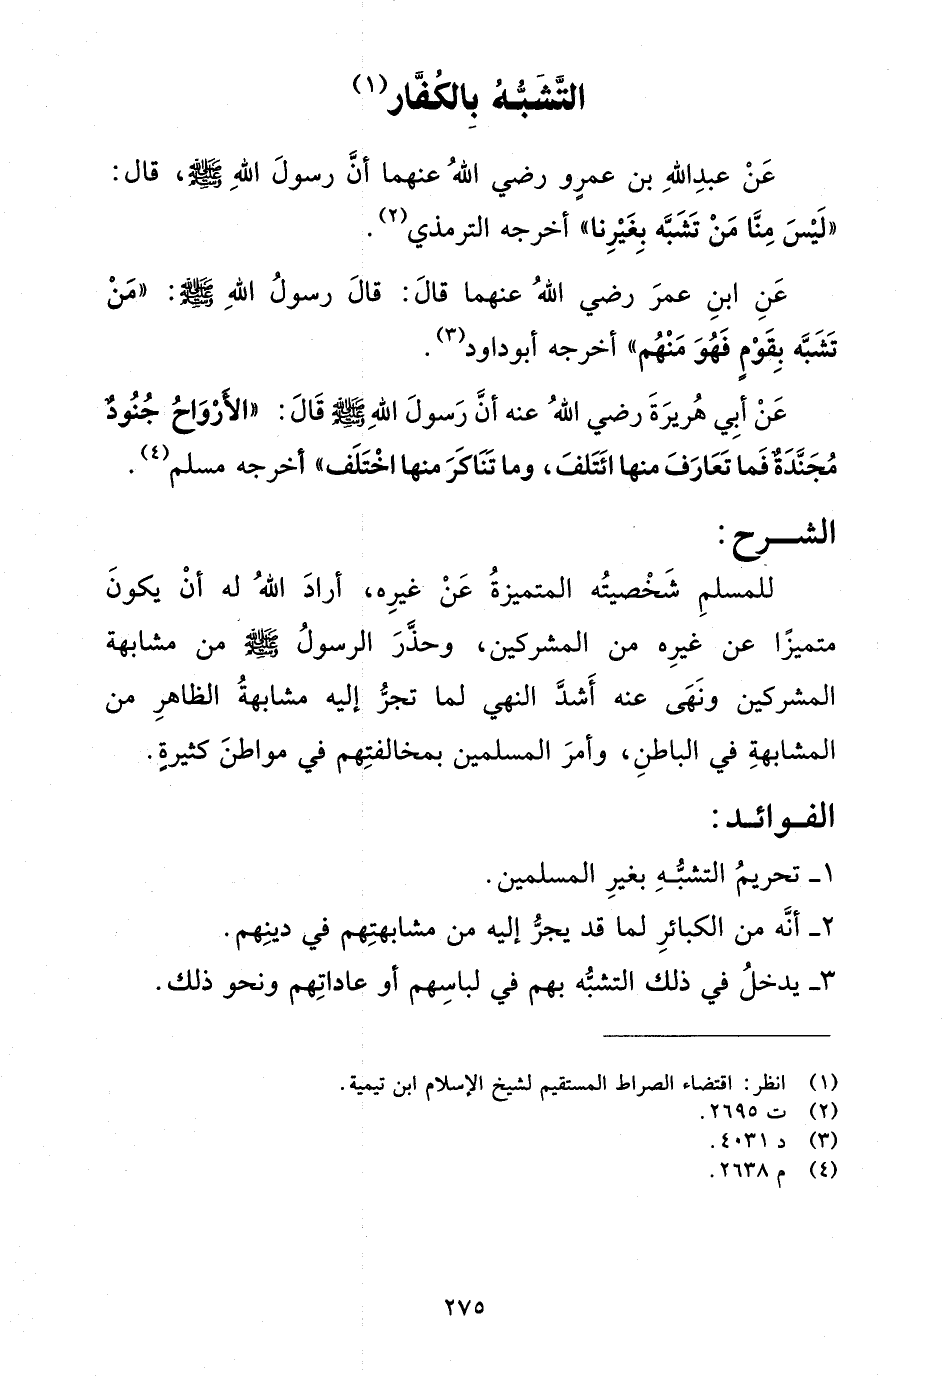 التَّشَبُّهُ بِالكُفَّارِ(١)
عَنْ عبدِاللهِ بن عمرٍو رضي اللهُ عنهما أنَّ رسولَ اللهِ ﷺ، قال:
«لَيْسَ مِنَّا مَنْ تَشَبَّه بِغَيْرِنا» أخرجه الترمذي(٢).
عَنِ ابنِ عمرَ رضي اللهُ عنهما قالَ: قالَ رسولُ اللهِ ﷺ: «مَنْ
تَشَبَّه بِقَوْمٍ فَهُوَ مَنْهُم» أخرجه أبوداود(٣).
عَنْ أبِي هُريرَةَ رضي اللهُ عنه أنَّ رَسولَ اللهِ ﷺ قَالَ: «الأَرْوَاحُ جُنُودٌ
مُجَنَّدَةٌ فَما تَعَارَفَ منها ائتَلفَ، وما تَنَاكَرَ منها اخْتَلَف» أخرجه مسلم(٤).
الشـــرح:
للمسلمِ شَخْصيتُه المتميزةُ عَنْ غيرِه، أرادَ اللهُ له أنْ يكونَ
متميزًا عن غيرِه من المشركين، وحذَّرَ الرسولُ ﷺ من مشابهة
المشركين ونَهَى عنه أَشدَّ النهي لما تجرُّ إليه مشابهةُ الظاهرِ من
المشابهةِ في الباطنِ، وأمرَ المسلمين بمخالفتِهم في مواطنَ كثيرةٍ.
الفـوائـد:
١ـ تحريمُ التشبُّـهِ بغيرِ المسلمين.
٢ـ أنَّه من الكبائرِ لما قد يجرُّ إليه من مشابهتِهم في دينِهم.
٣ـ يدخلُ في ذلك التشبُّه بهم في لباسِهم أو عاداتِهم ونحو ذلك.
(١) انظر: اقتضاء الصراط المستقيم لشيخ الإسلام ابن تيمية.
(٢) ت ٢٦٩٥.
(٣) د ٤٠٣١.
(٤) م ٢٦٣٨.
٢٧٥